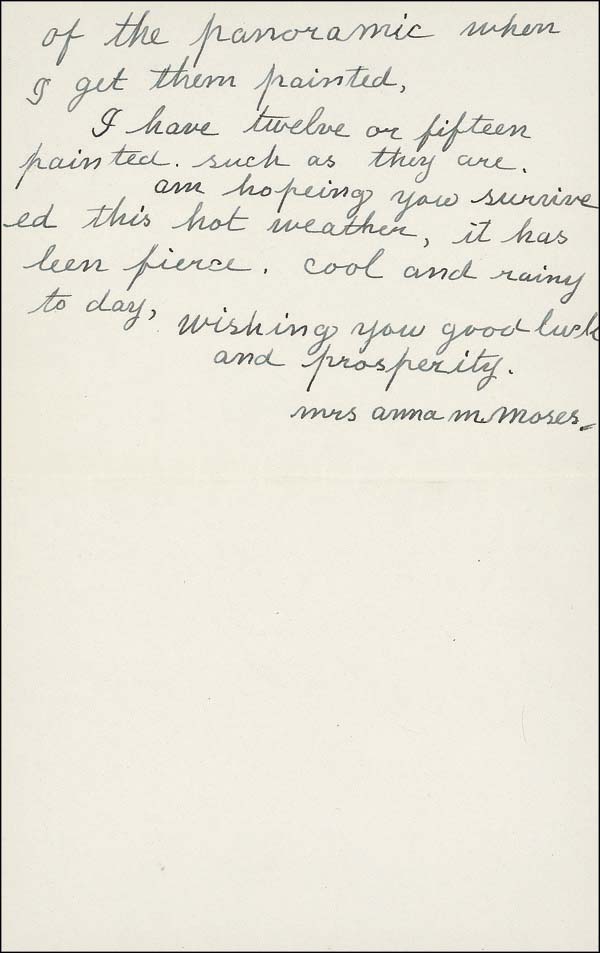 of the panoramic when
I get them painted,
I have twelve or fifteen
painted. such as they are.
am hopeing you surviv
ed this hot weather, it has
leen fierce. cool and rainy
to day, wishing you good luck
and prosperity.
mrs anna m. Moses.